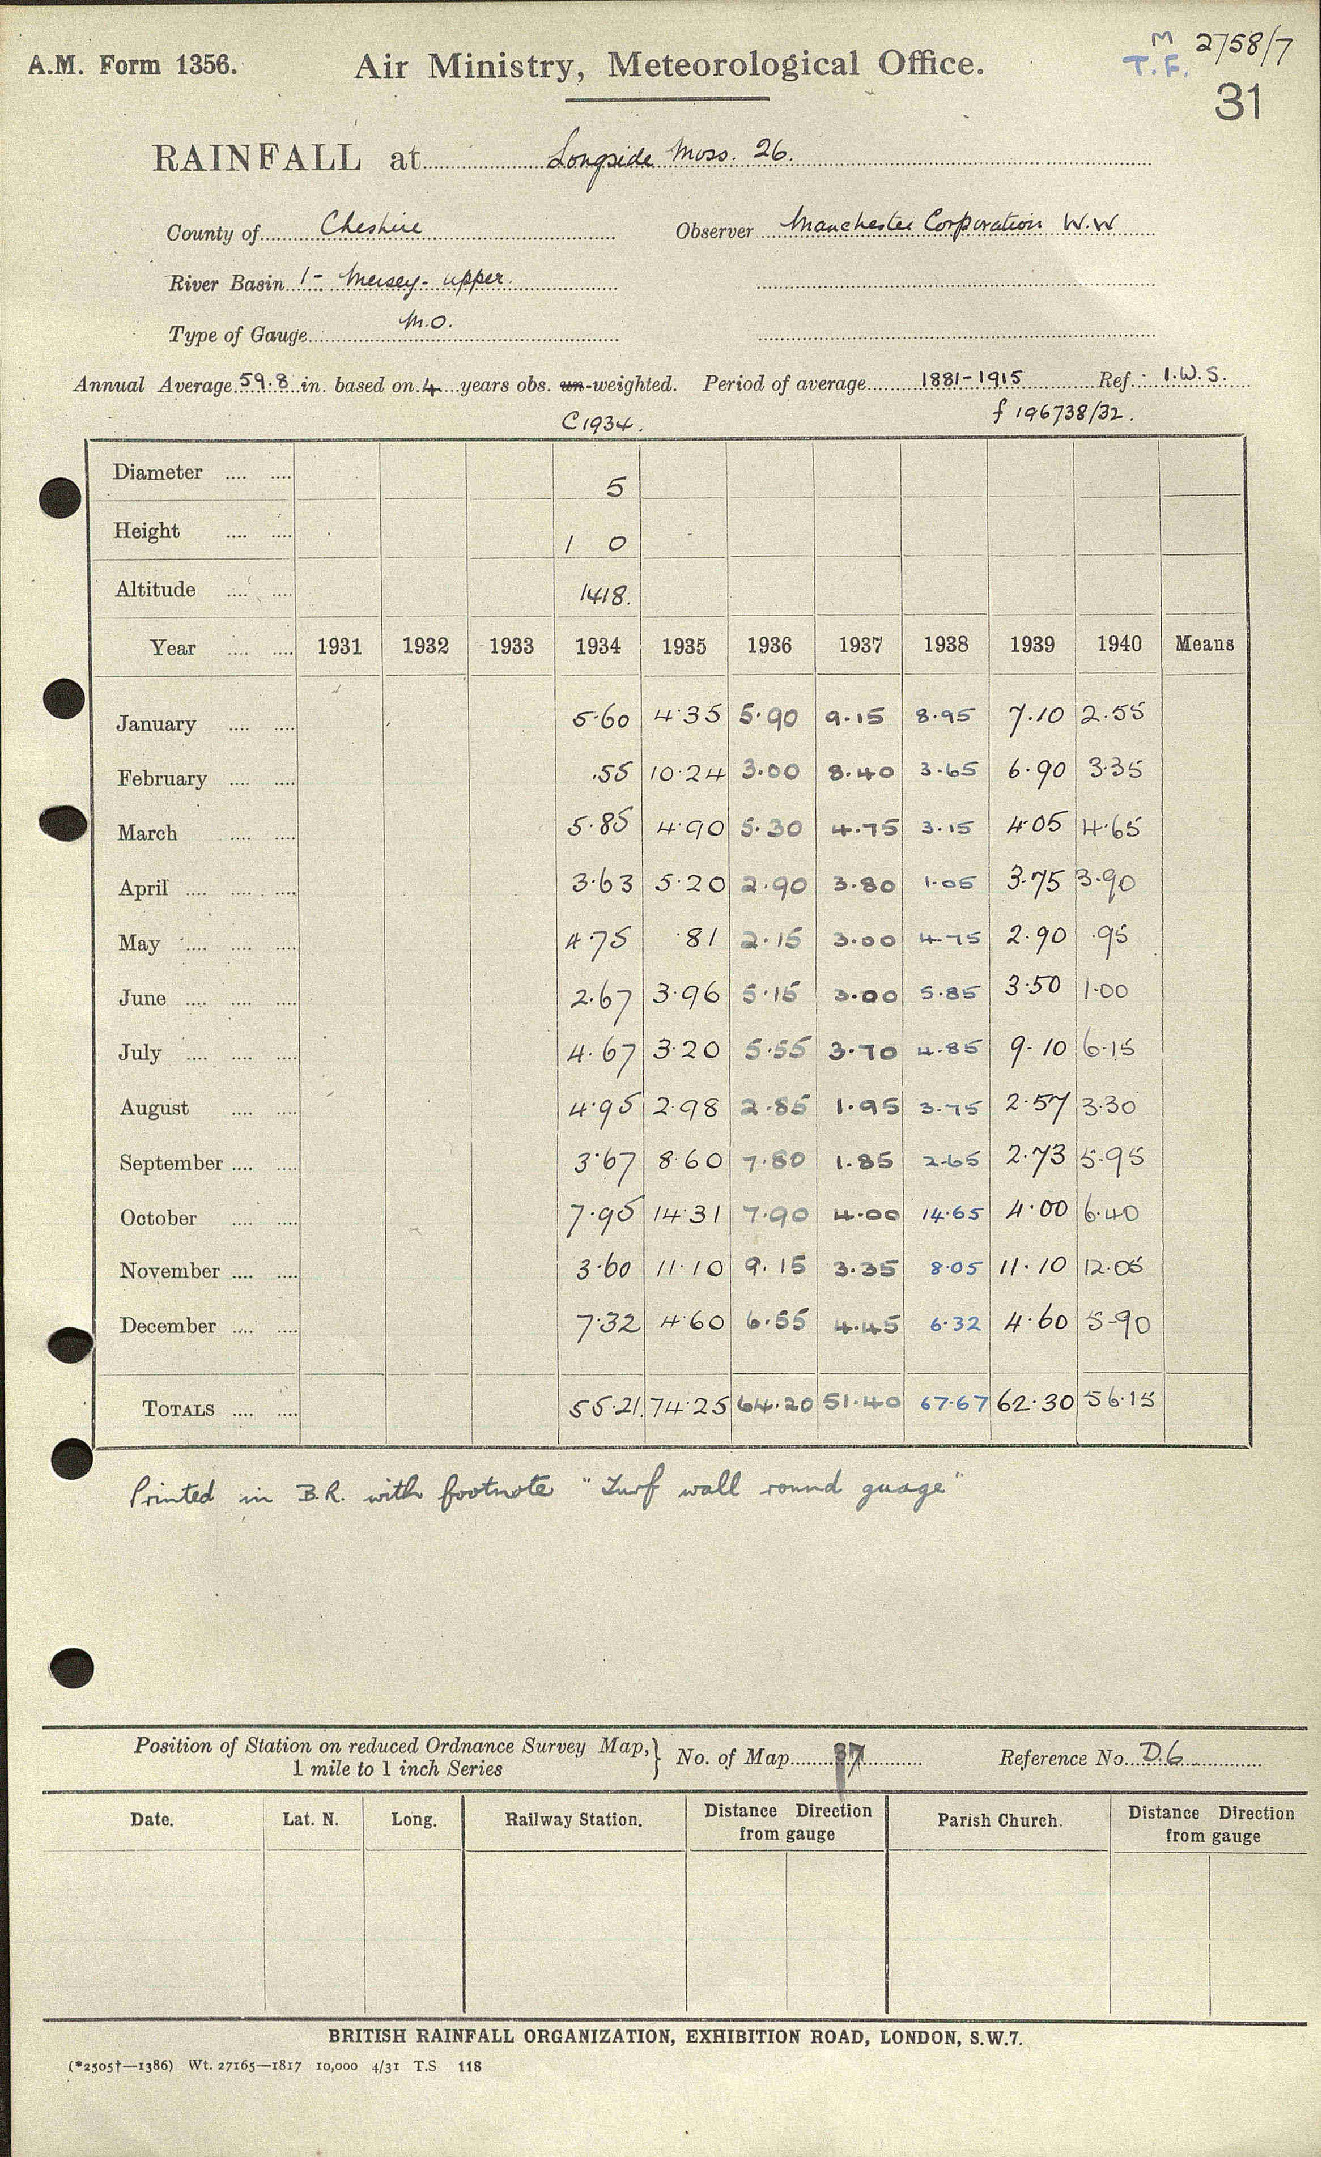 A.M. Form 1356.
Air Ministry, Meteorological Office.
M 2758/7
T.F.
31
RAINFALL at Longside Moss. 26.
County of Cheshire Observer Manchester Corporation W.W
River Basin 1 - Mersey - upper.
Type of Gauge M.O.
Annual Average 59.8 in. based on 4 years obs. un-weighted. Period of average 1881-1915 Ref. I.W.S.
C1934. f 196738/32.
Diameter .... .... 5
Height .... .... 1 0
Altitude .... .... 1418.
Year .... .... 1931 1932 1933 1934 1935 1936 1937 1938 1939 1940 Means
January .... .... 5.60 4.35 5.90 9.15 8.95 7.10 2.55
February .... .... .55 10.24 3.00 8.40 3.65 6.90 3.35
March .... .... 5.85 4.90 5.30 4.75 3.15 4.05 4.65
April .... .... .... 3.63 5.20 2.90 3.80 1.05 3.75 3.90
May .... .... .... 4.75 .81 2.15 3.00 4.75 2.90 .95
June .... .... .... 2.67 3.96 5.15 3.00 5.85 3.50 1.00
July .... .... .... 4.67 3.20 5.55 3.70 4.85 9.10 6.15
August .... .... 4.95 2.98 2.85 1.95 3.75 2.57 3.30
September .... .... 3.67 8.60 7.80 1.85 2.65 2.73 5.95
October .... .... 7.95 14.31 7.90 4.00 14.65 4.00 6.40
November .... .... 3.60 11.10 9.15 3.35 8.05 11.10 12.05
December .... .... 7.32 4.60 6.55 4.45 6.32 4.60 5.90
TOTALS .... .... 55.21 74.25 64.20 51.40 67.67 62.30 56.15
Printed in B.R. with footnote "Turf wall round guage"
Position of Station on reduced Ordnance Survey Map, 1 mile to 1 inch Series } No. of Map 37 Reference No. D.6
Date. Lat. N. Long. Railway Station. Distance Direction from gauge Parish Church. Distance Direction from gauge
BRITISH RAINFALL ORGANIZATION, EXHIBITION ROAD, LONDON, S.W.7.
(*2505†—1386) Wt. 27165—1817 10,000 4/31 T.S 118